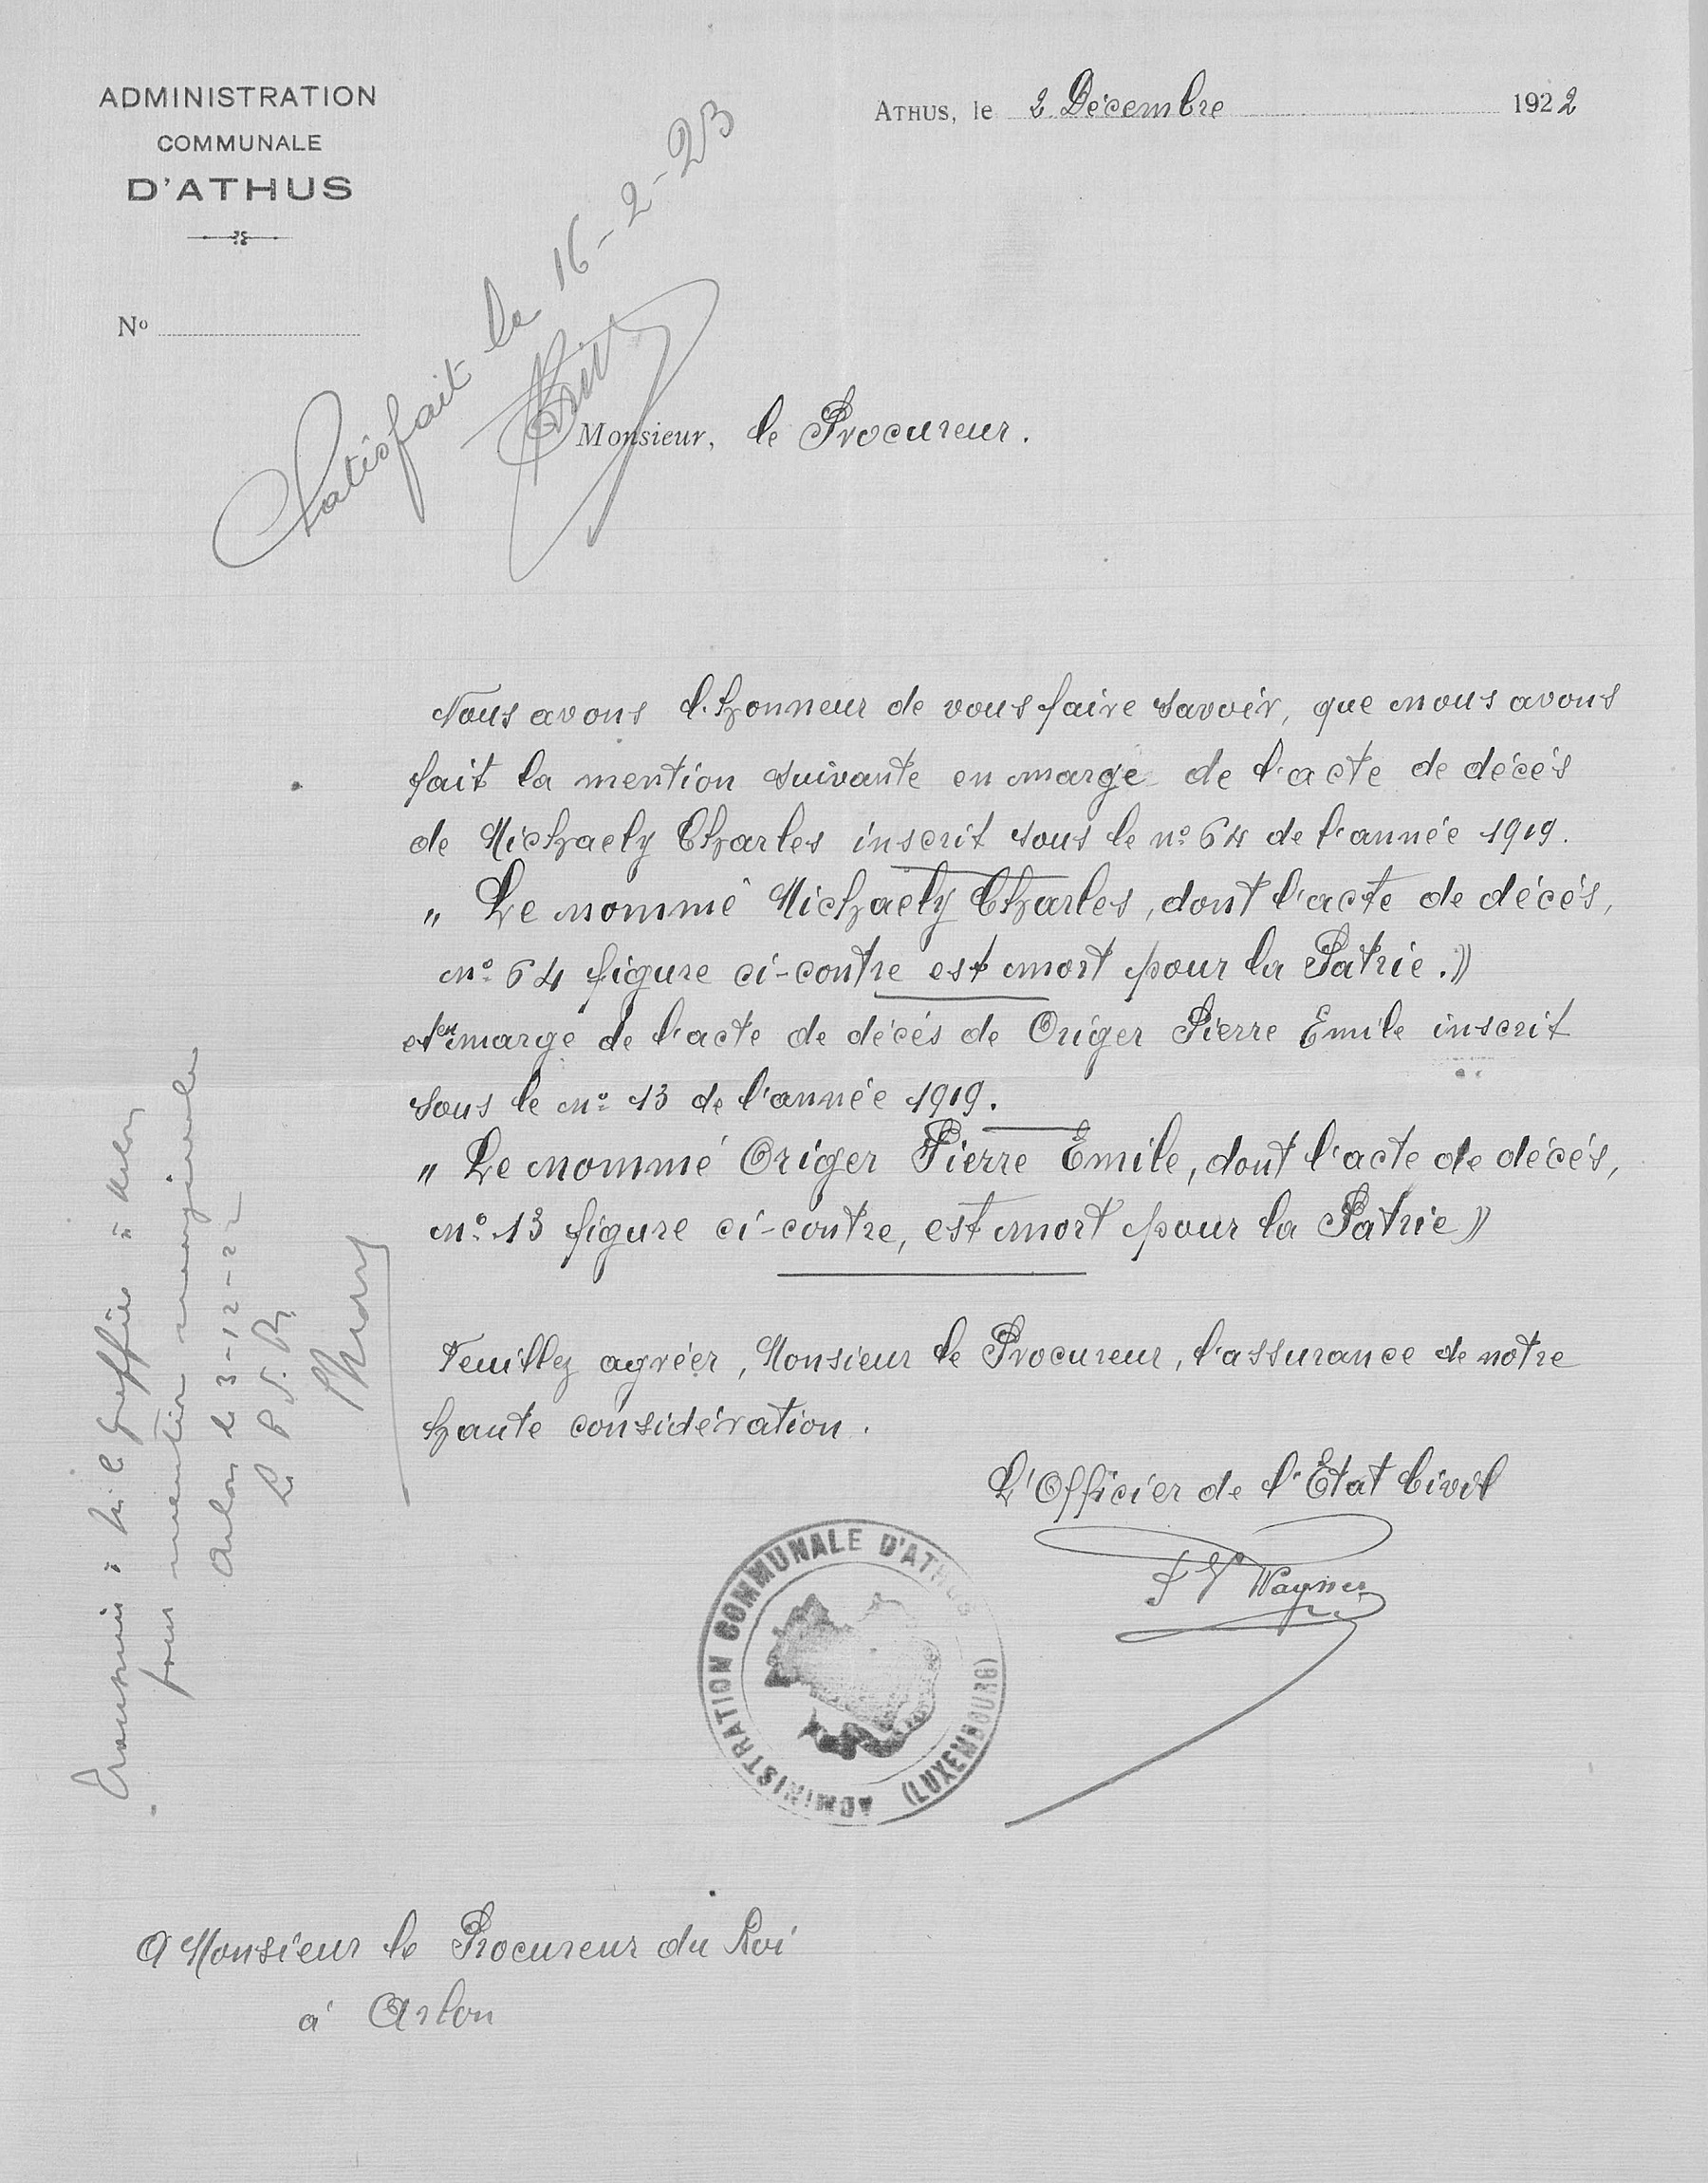 ADMINISTRATION
COMMUNALE
D'ATHUS
No
ATHUS, le 2 Décembre 1922
Satisfait le 16-2-23
Monsieur, le Procureur.
Nous avons l'honneur de vous faire savoir, que nous avons
fait la mention suivante en marge de l'acte de décés
de Michaely Charles inscrit sous le no 64 de l'année 1919.
„ Le nommé Michaely Charles, dont l'acte de décés,
no 64 figure ci-contre est mort pour la Patrie.»
et en marge de l'acte de décés de Origer Pierre Emile inscrit
sous le no 13 de l'année 1919.
„ Le nommé Origer Pierre Emile, dont l'acte de décés,
no 13 figure ci-contre, est mort pour la Patrie»
Veuillez agréer, Monsieur le Procureur, l'assurance de notre
haute considération.
L'Officier de l'Etat Civil
Wagner
ADMINISTRATION COMMUNALE D'ATHUS
(LUXEMBOURG)
Transmis à M le greffier à Arlon
pour mention marginale
Arlon le 3-12-22
Le P. d. R.
A Monsieur le Procureur du Roi
à Arlon